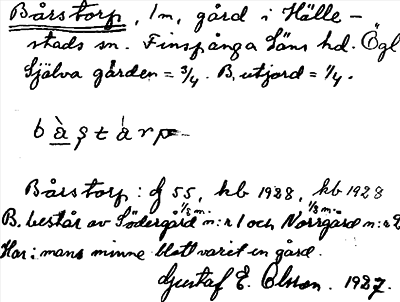 Bårstorp, 1 m, gård i Hälle-
stads sn. Finspånga Läns hd. Ögl
Själva gården = 3/4. B. utjord = 1/4.
bàştárp
Bårstorp: df 55, kb 1928, kb 1928
B. består av Södergård 1/2 m. n:r 1 och Norrgård 1/2 m. n:r 2
Har i mans minne blott varit en gård.
Gustaf E. Olsson. 1927.